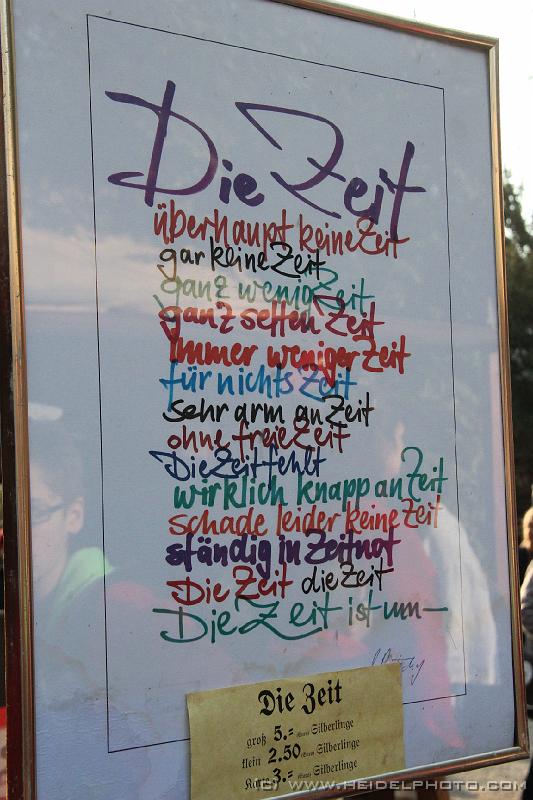 Die Zeit
überhaupt keine Zeit
gar keine Zeit
ganz wenig Zeit
ganz selten Zeit
Immer weniger Zeit
für nichts Zeit
sehr arm an Zeit
ohne freie Zeit
Die Zeit fehlt
wirklich knapp an Zeit
schade leider keine Zeit
ständig in Zeitnot
Die Zeit die Zeit
Die Zeit ist um—
Die Zeit
groß 5.= Silberlinge
klein 2.50 Silberlinge
3.= Silberlinge
WWW.HEIDELPHOTO.COM